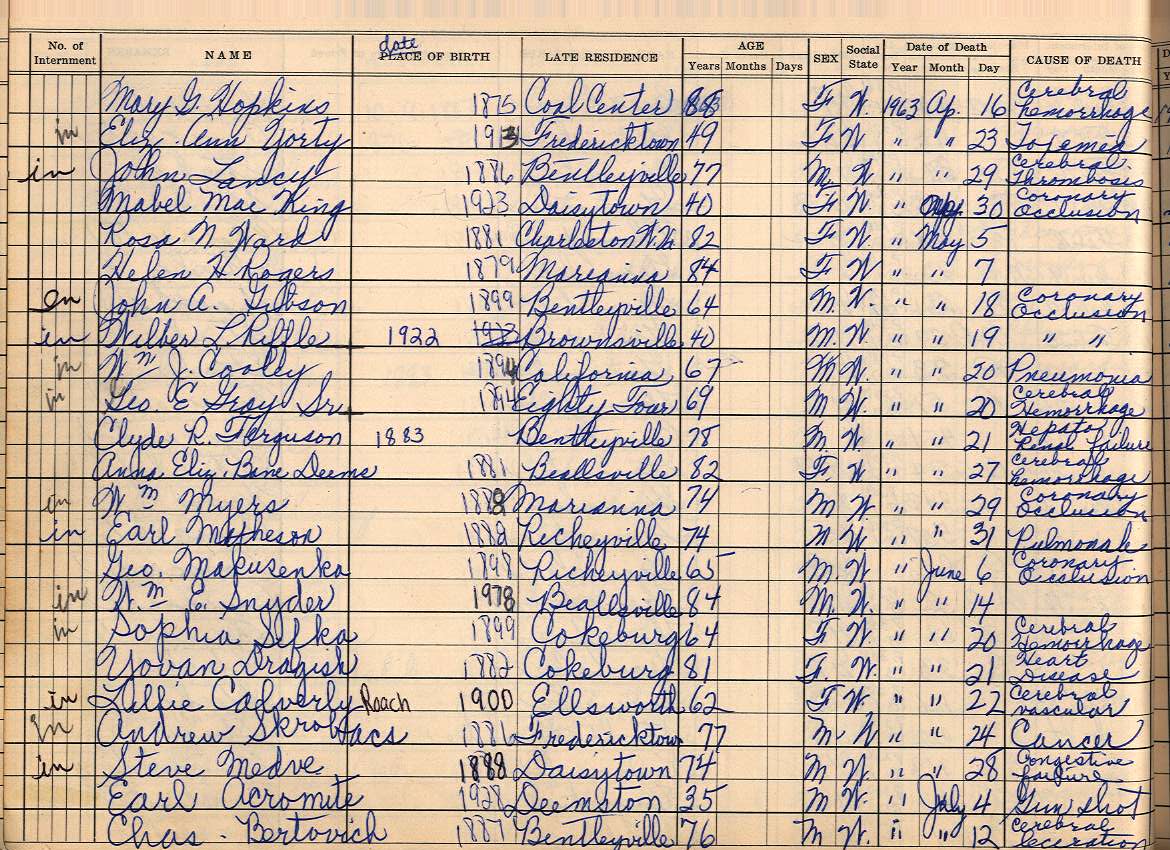 No. of Internment NAME date PLACE OF BIRTH LATE RESIDENCE AGE Years Months Days SEX Social State Date of Death Year Month Day CAUSE OF DEATH
Mary G. Hopkins 1875 Coal Center 88 F W. 1963 Ap. 16 Cerebral hemorrhage
in Eliz. Ann Yorty 1913 Fredericktown 49 F W " " 23 Toxemia
in John Lancy 1886 Bentleyville 77 M. W. " " 29 Cerebral Thrombosis
Mabel Mae King 1923 Daisytown 40 F W. " 30 Coronary Occlusion
Rosa N. Ward 1881 Charleston W.Va 82 F W. " May 5
Helen H Rogers 1879 Marianna 84 F W " " 7
en John A. Gibson 1899 Bentleyville 64 M. W. " " 18 Coronary Occlusion
in Wilber L Riffle 1922 1923 Brownsville 40 M. W. " " 19 " "
in Wm J. Cooley 1894 California 67 M W. " " 20 Pneumonia
in Geo. E Gray Sr. 1894 Eighty Four 69 M W. " " 20 Cerebral Hemorrhage
Clyde R. Ferguson 1883 Bentleyville 78 M. W. " " 21 Hepato Renal failure
Anna Eliz Bane Deems 1881 Beallsville 82 F. W " " 27 Cerebral hemorrhage
en Wm Myers 1888 Marianna 74 M W. " " 29 Coronary Occlusion
in Earl Matheson 1888 Richeyville 74 M W. " " 31 Pulmonah
Geo. Makusenka 1898 Richeyville 65 M. W. " June 6 Coronary Occlusion
in Wm E. Snyder 1978 Beallsville 84 M. W. " " 14
in Sophia Sefka 1899 Cokeburg 64 F W. " " 20 Cerebral Hemorrhage
Yovan Dragish 1882 Cokeburg 81 F. W. " " 21 Heart Disease
in Lillie Calverly Roach 1900 Ellsworth 62 F W. " " 22 Cerebral vascular
in Andrew Skrobacs 1886 Fredericktown 77 M W " " 24 Cancer
in Steve Medve 1888 Daisytown 74 M W. " " 28 Congestive failure
Earl Acromite 1928 Deemston 35 M W. " July 4 Gun shot
Chas. Bertovich 1887 Bentleyville 76 M W. " " 12 Cerebral laceration